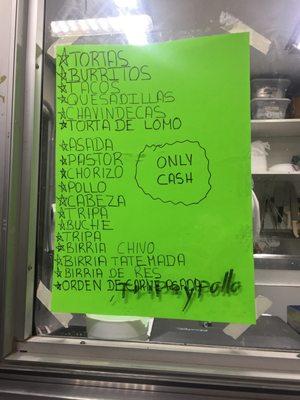 ☆TORTAS
☆BURRITOS
☆TACOS
☆QUESADILLAS
☆CHAVINDECAS
☆TORTA DE LOMO
☆ASADA
☆PASTOR
☆CHORIZO
☆POLLO
☆CABEZA
☆TRIPA
☆BUCHE
☆TRIPA
☆BIRRIA CHIVO
☆BIRRIA TATEMADA
☆BIRRIA DE RES
☆ORDEN DE CARNE ASADA
Tripa y Pollo
ONLY
CASH